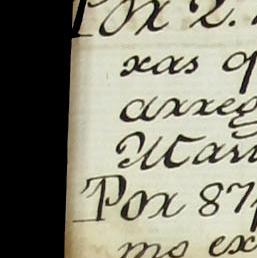 Por 2.
xas
arreg
Mari
Por 87
mo ex